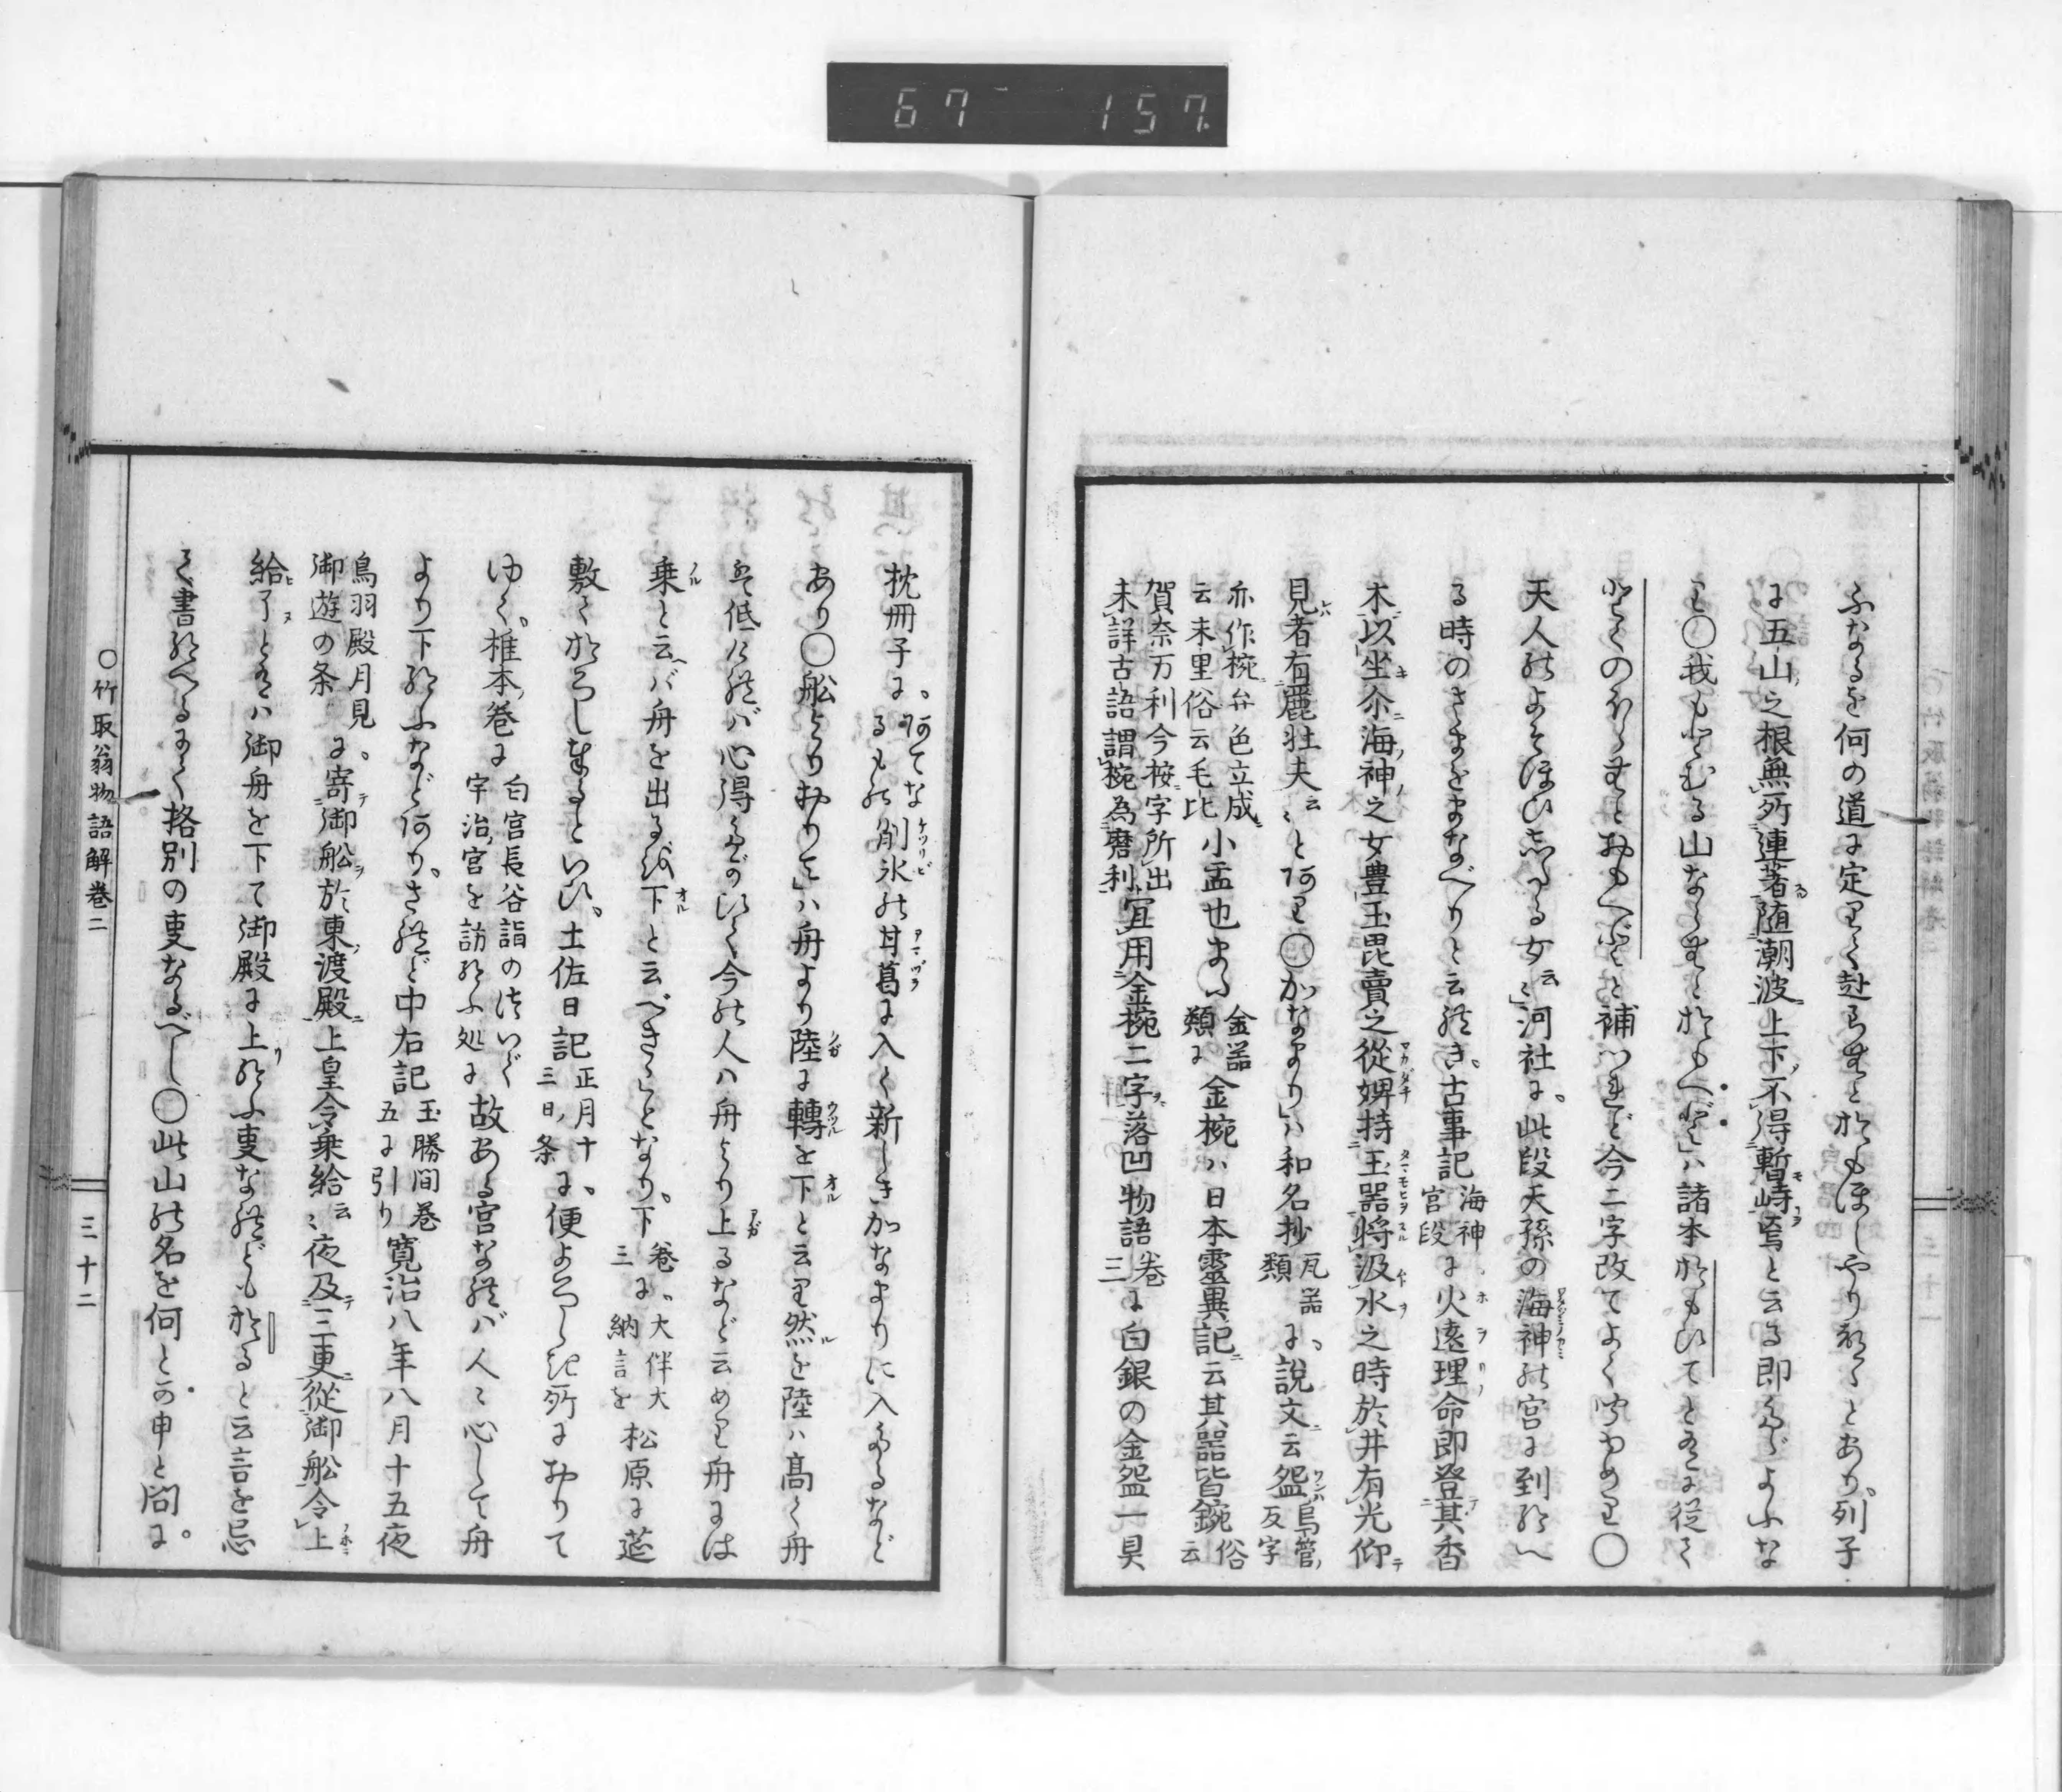 67 157
ふなるを何の道に定りて赴らむとおもほしやり給ふとあり、列子
に五山之根無所連著随潮波上下不得暫峙焉と云る即ただよふな
り〇我もとむる山ならむとおもへど」ハ諸本おもひてとあるに従て
天人のよそほひしたる女云々」河社に。此段天孫の海神の宮に到給へ
る時のさまをまなべりと云れき。古事記海神宮段に火遠理命即登其香
木以坐尒海神之女豊玉毘賣之從婢持玉器将汲水之時於井有光仰
見者有麗壮夫云々とあり〇かなまり」ハ和名抄瓦器類に。説文云盌烏管反字
亦作椀弁色立成云末里俗云毛比小盂也また金器類に金椀ハ日本靈異記云其器皆鋺俗云
賀奈万利今按字所出未詳古語謂椀為磨利宜用金椀二字落凹物語巻三に白銀の金盌一具
枕冊子に。あてなるもの削氷の甘葛に入て新しきかなまりに入たるなど
あり〇舩よりおりて」ハ舟より陸に轉を下と云り然を陸ハ髙く舟
は低ければ心得たがひて今の人ハ舟より上るなど云めり舟には
乗と云ヘバ舟を出るをば下と云べきことなり。下巻三に。大伴大納言を松原に莚
敷ておろし奉るといひ。土佐日記正月十三日ノ条に。便よろしき所におりて
ゆく。椎本ノ巻に匂宮長谷詣のついで宇治ノ宮を訪給ふ処に故ある宮なればハ人々心して舟
より下給ふなどあり。されど中右記玉勝間巻五に引り寛治八年八月十五夜
鳥羽殿月見御遊の条に。寄御舩於東渡殿上皇令乗給云々夜及三更從御舩令上
給了とあるハ御舟を下て御殿に上り給ふ叓なれども於ると云言を忌
て書給へるにて格別の叓なるべし〇此山の名を何とか申と問に。
〇竹取翁物語解巻二
三十二